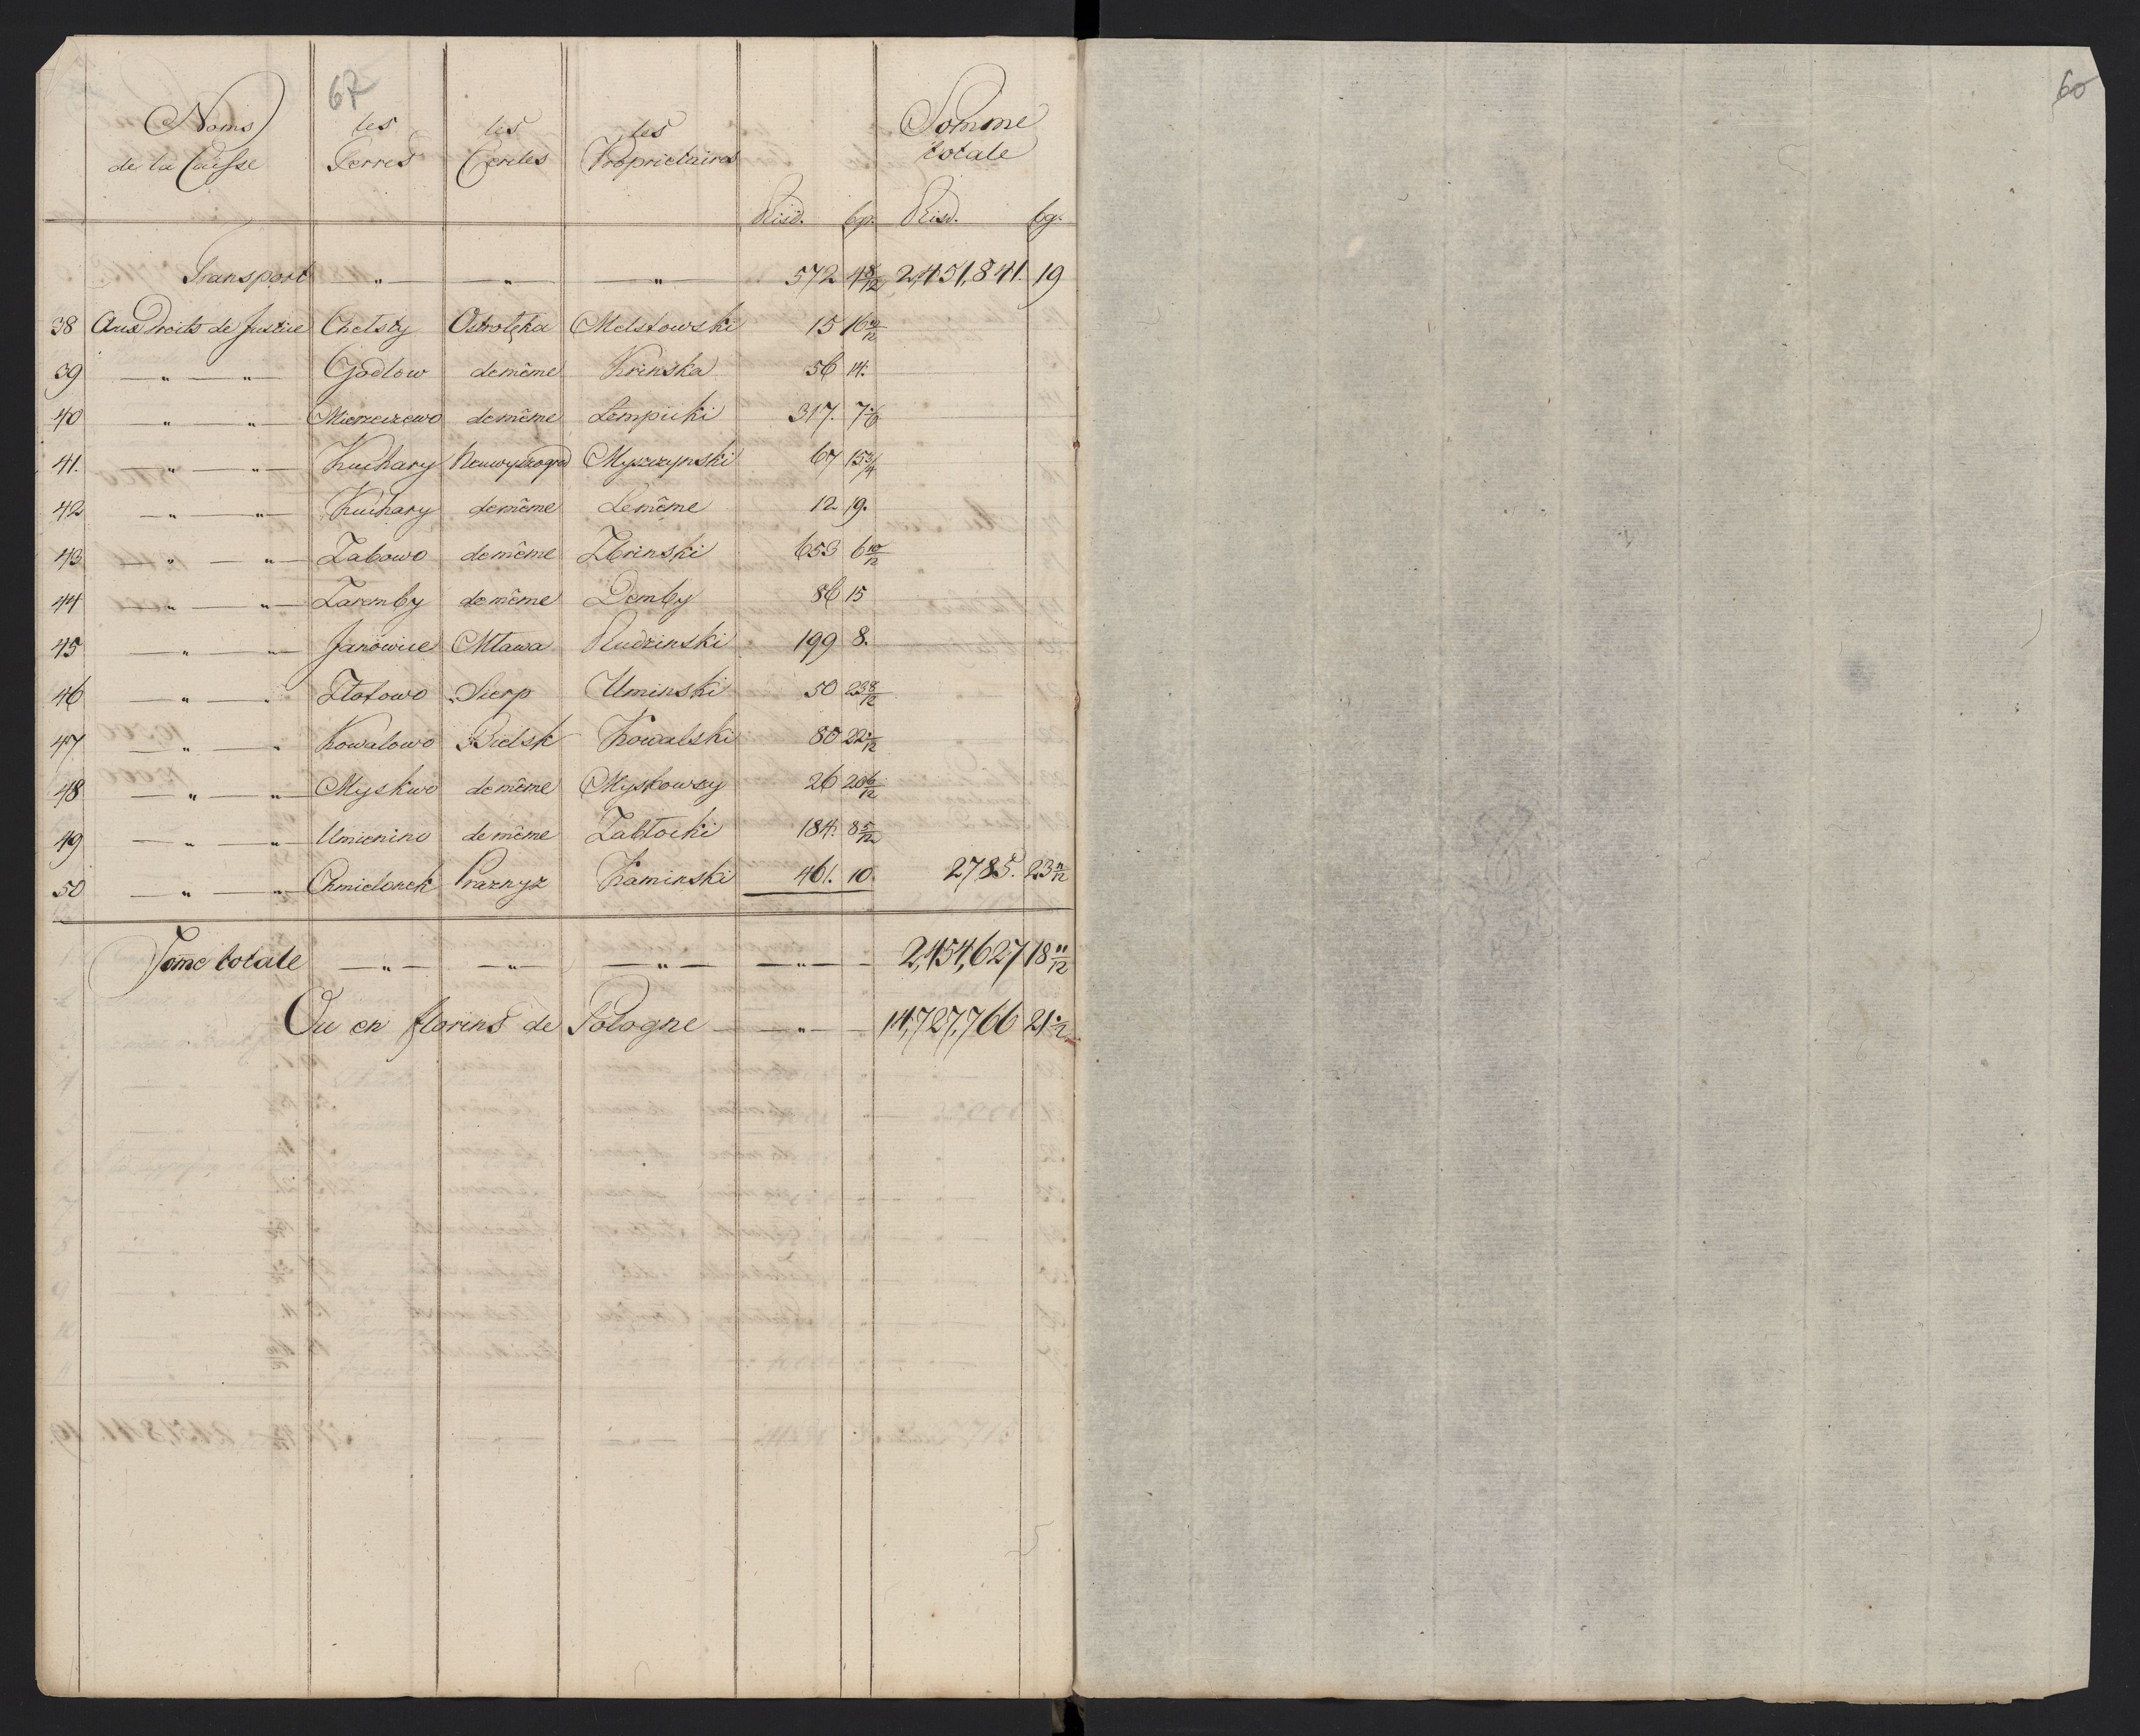 67
60
Noms de la Caisse les Terres les Cercles les Proprietaires Somme totale
Risd. bg. Risd. bg.
Transport " " " 572 4 8/12 2,451,841. 19
38 Aux droits de Justice Chelsty Ostrołęka Melstowski 15 16
39 " " Godlow de même Krinska 56 14.
40 " " Mierzeizewo de même Lempicki 317. 7
41. " " Kuchary Neuwyszogrod Myszczynski 67 15 3/4
42 " " Kuchary de même Le même 12 19.
43 " " Zabowo de même Zbrinski 653 6 10/12
44 " " Zaremby de même Demby 86 15
45 " " Janowice Mlawa Rudzinski 199 8.
46 " " Złotowo Sierp Uminski 50 23 8/12
47 " " Kowalowo Bielsk Kowalski 80 22
48 " " Myskwo de même Myskowscy 26 20 6/12
49 " " Umienino de même Zabłocki 184. 8 5/12
50 " " Chmielonek Praznyz Kaminski 461. 10. 2785. 23 11/12
Some totale " " " " 2,454,627 18 11/12
Ou en florins de Pologne " 14,727,766 21